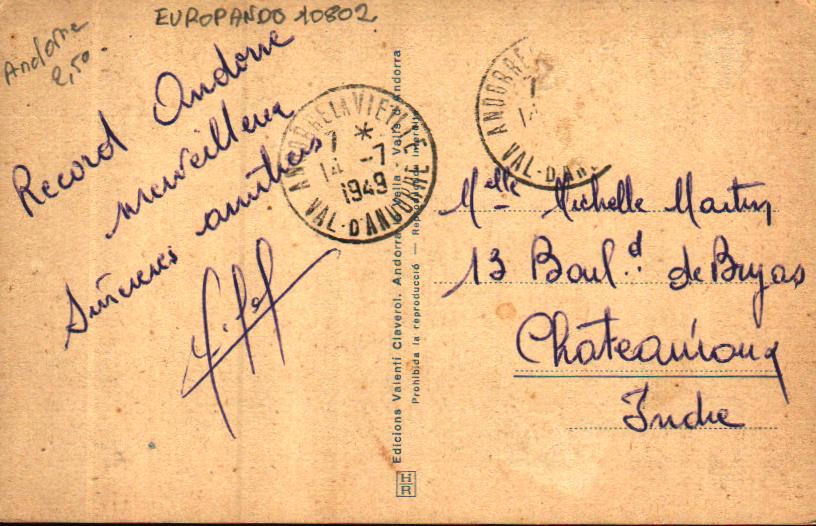 EUROPANDO 10802
Andorre
2,50
Record Andorre
merveilleux
Sincères amitiés
ANDORRE LA VIEILLE
7 *
14 -7
1949
VAL-D'ANDORRE
ANDORRE
7
14
VAL-D'AN
Edicions Valentí Claverol. Andorra la Vella - Valls d'Andorra
Prohibida la reproducció — Reproduction interdite
HR
Melle Michelle Martin
13 Bould. de Bryas
Châteauroux
Indre